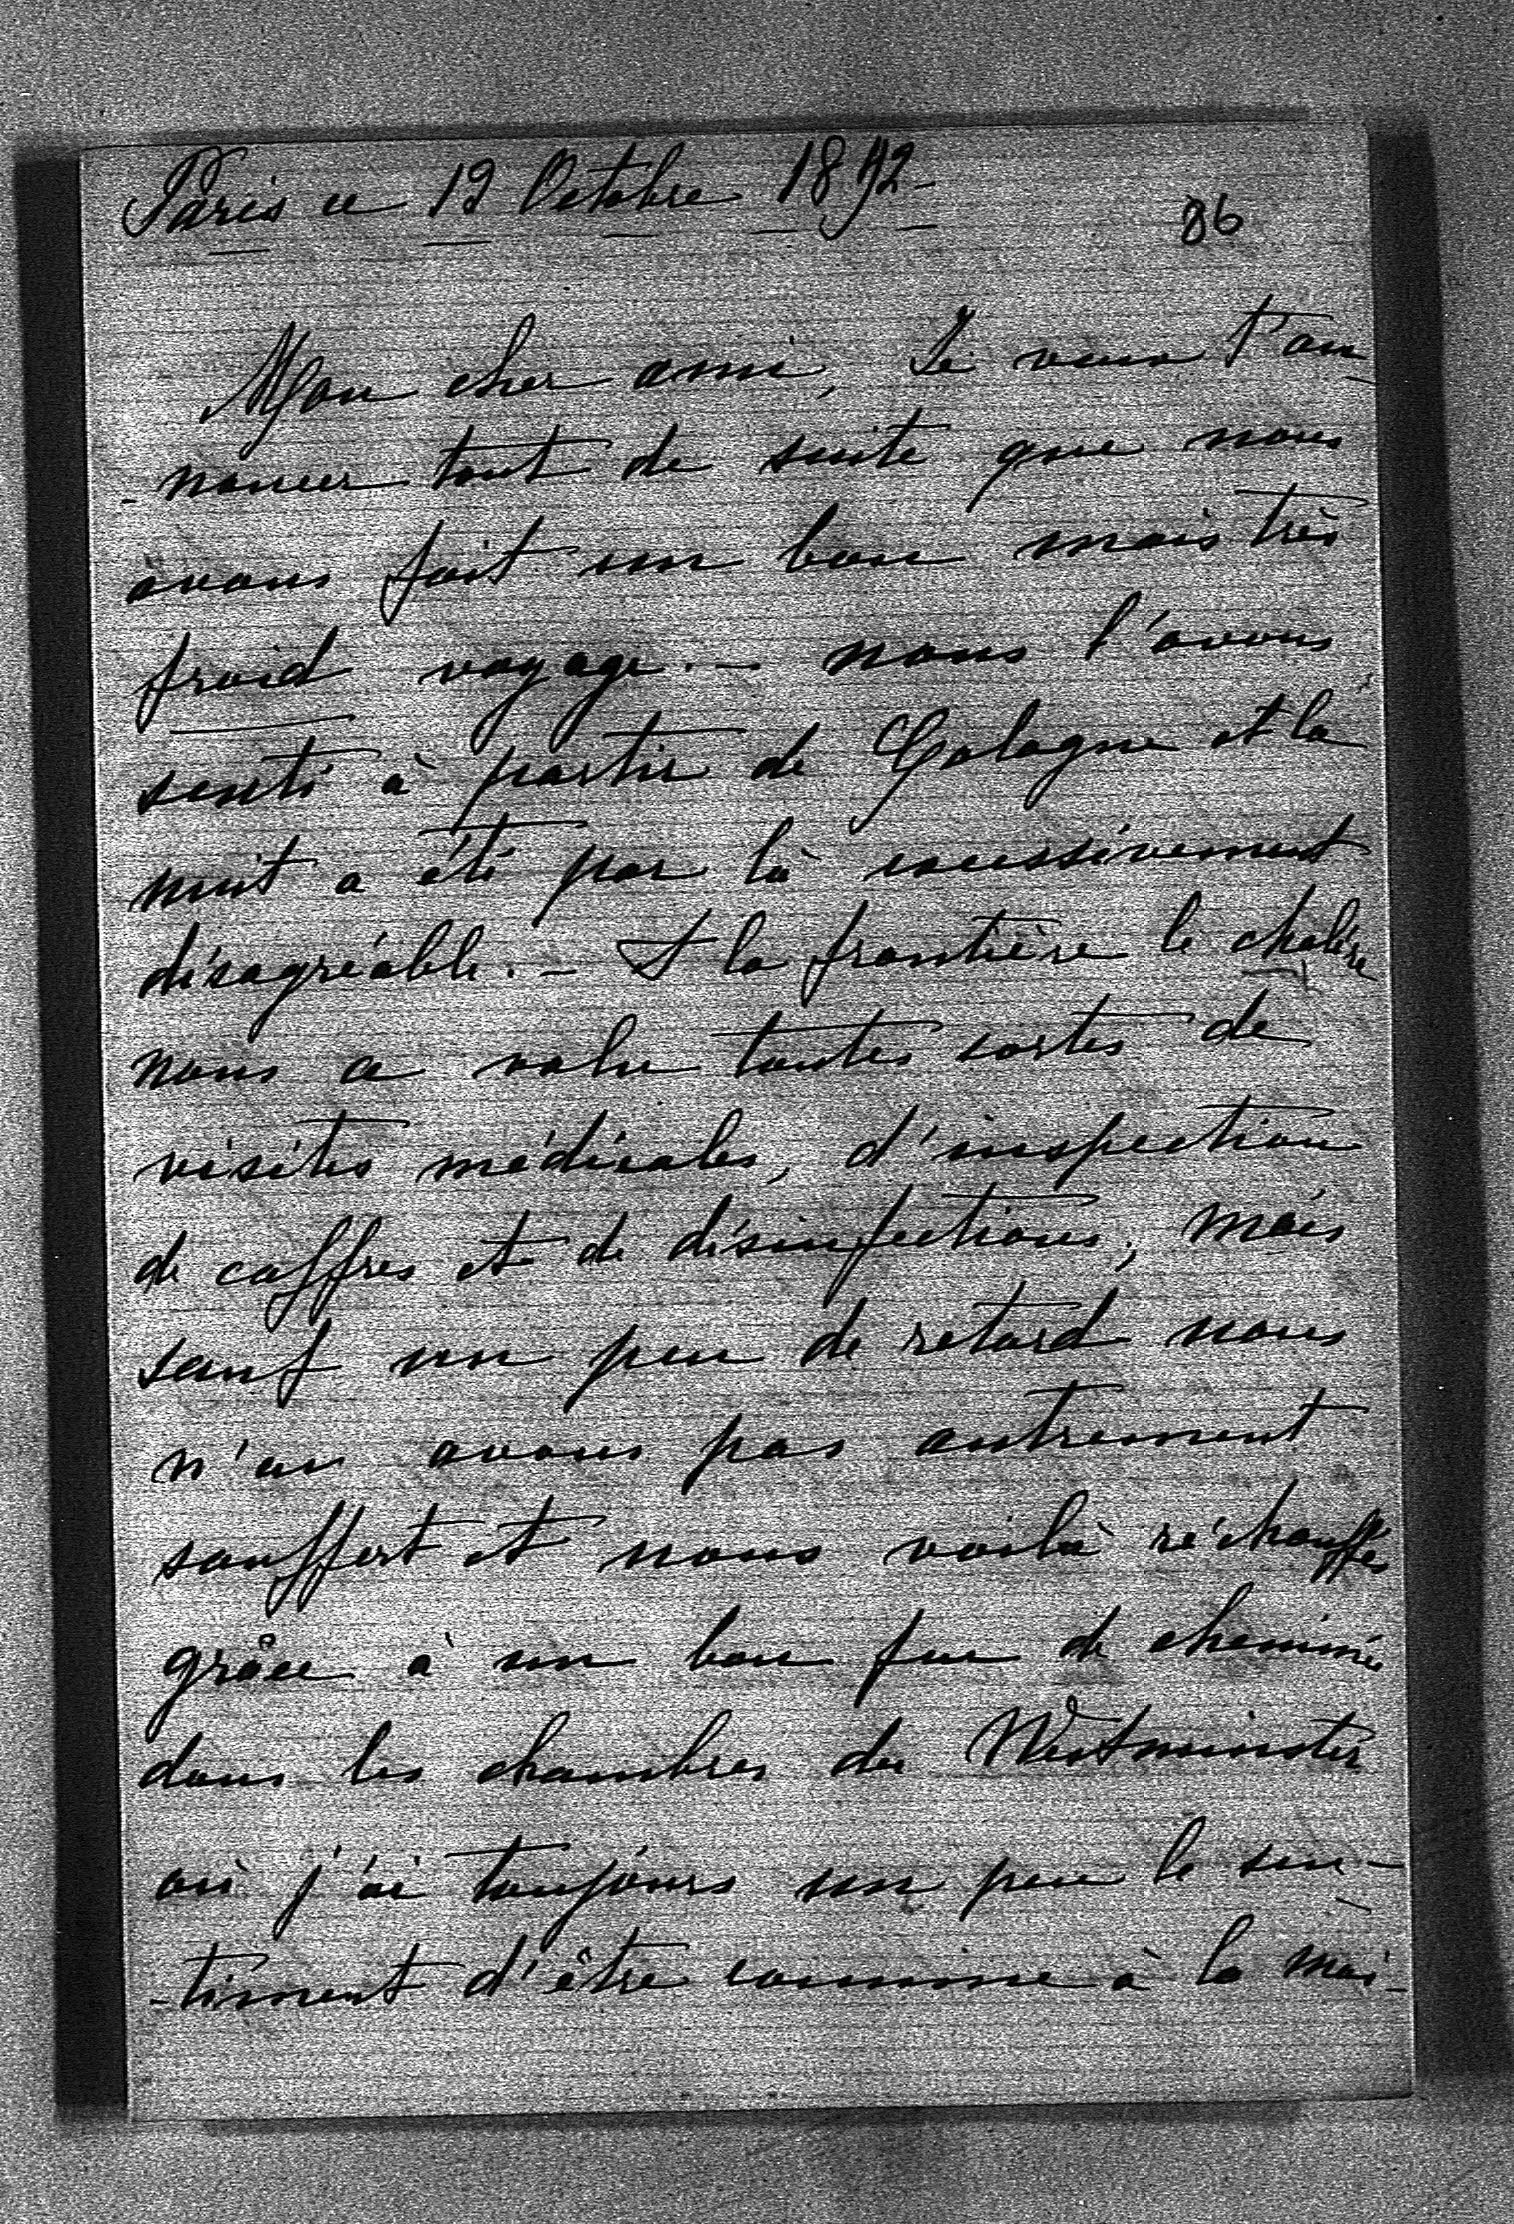 Paris ce 19 Octobre 1892 -
86
Mon cher ami, Je veux t'an-
- noncer tout de suite que nous
avons fait un bon mais très
froid voyage. - nous l'avons
senti à partir de Cologne et la
nuit a été par là excessivement
désagréable. - A la frontière le choléra
nous a valu toutes sortes de
visites médicales, d'inspection
de coffres et de désinfections; mais
sauf un peu de retard nous
n'en avons pas autrement
souffert et nous voilà réchauffés
grâce à un bon feu de cheminée
dans les chambres du Westminster
où j'ai toujours un peu le sen-
-timent d'être comme à la mai-